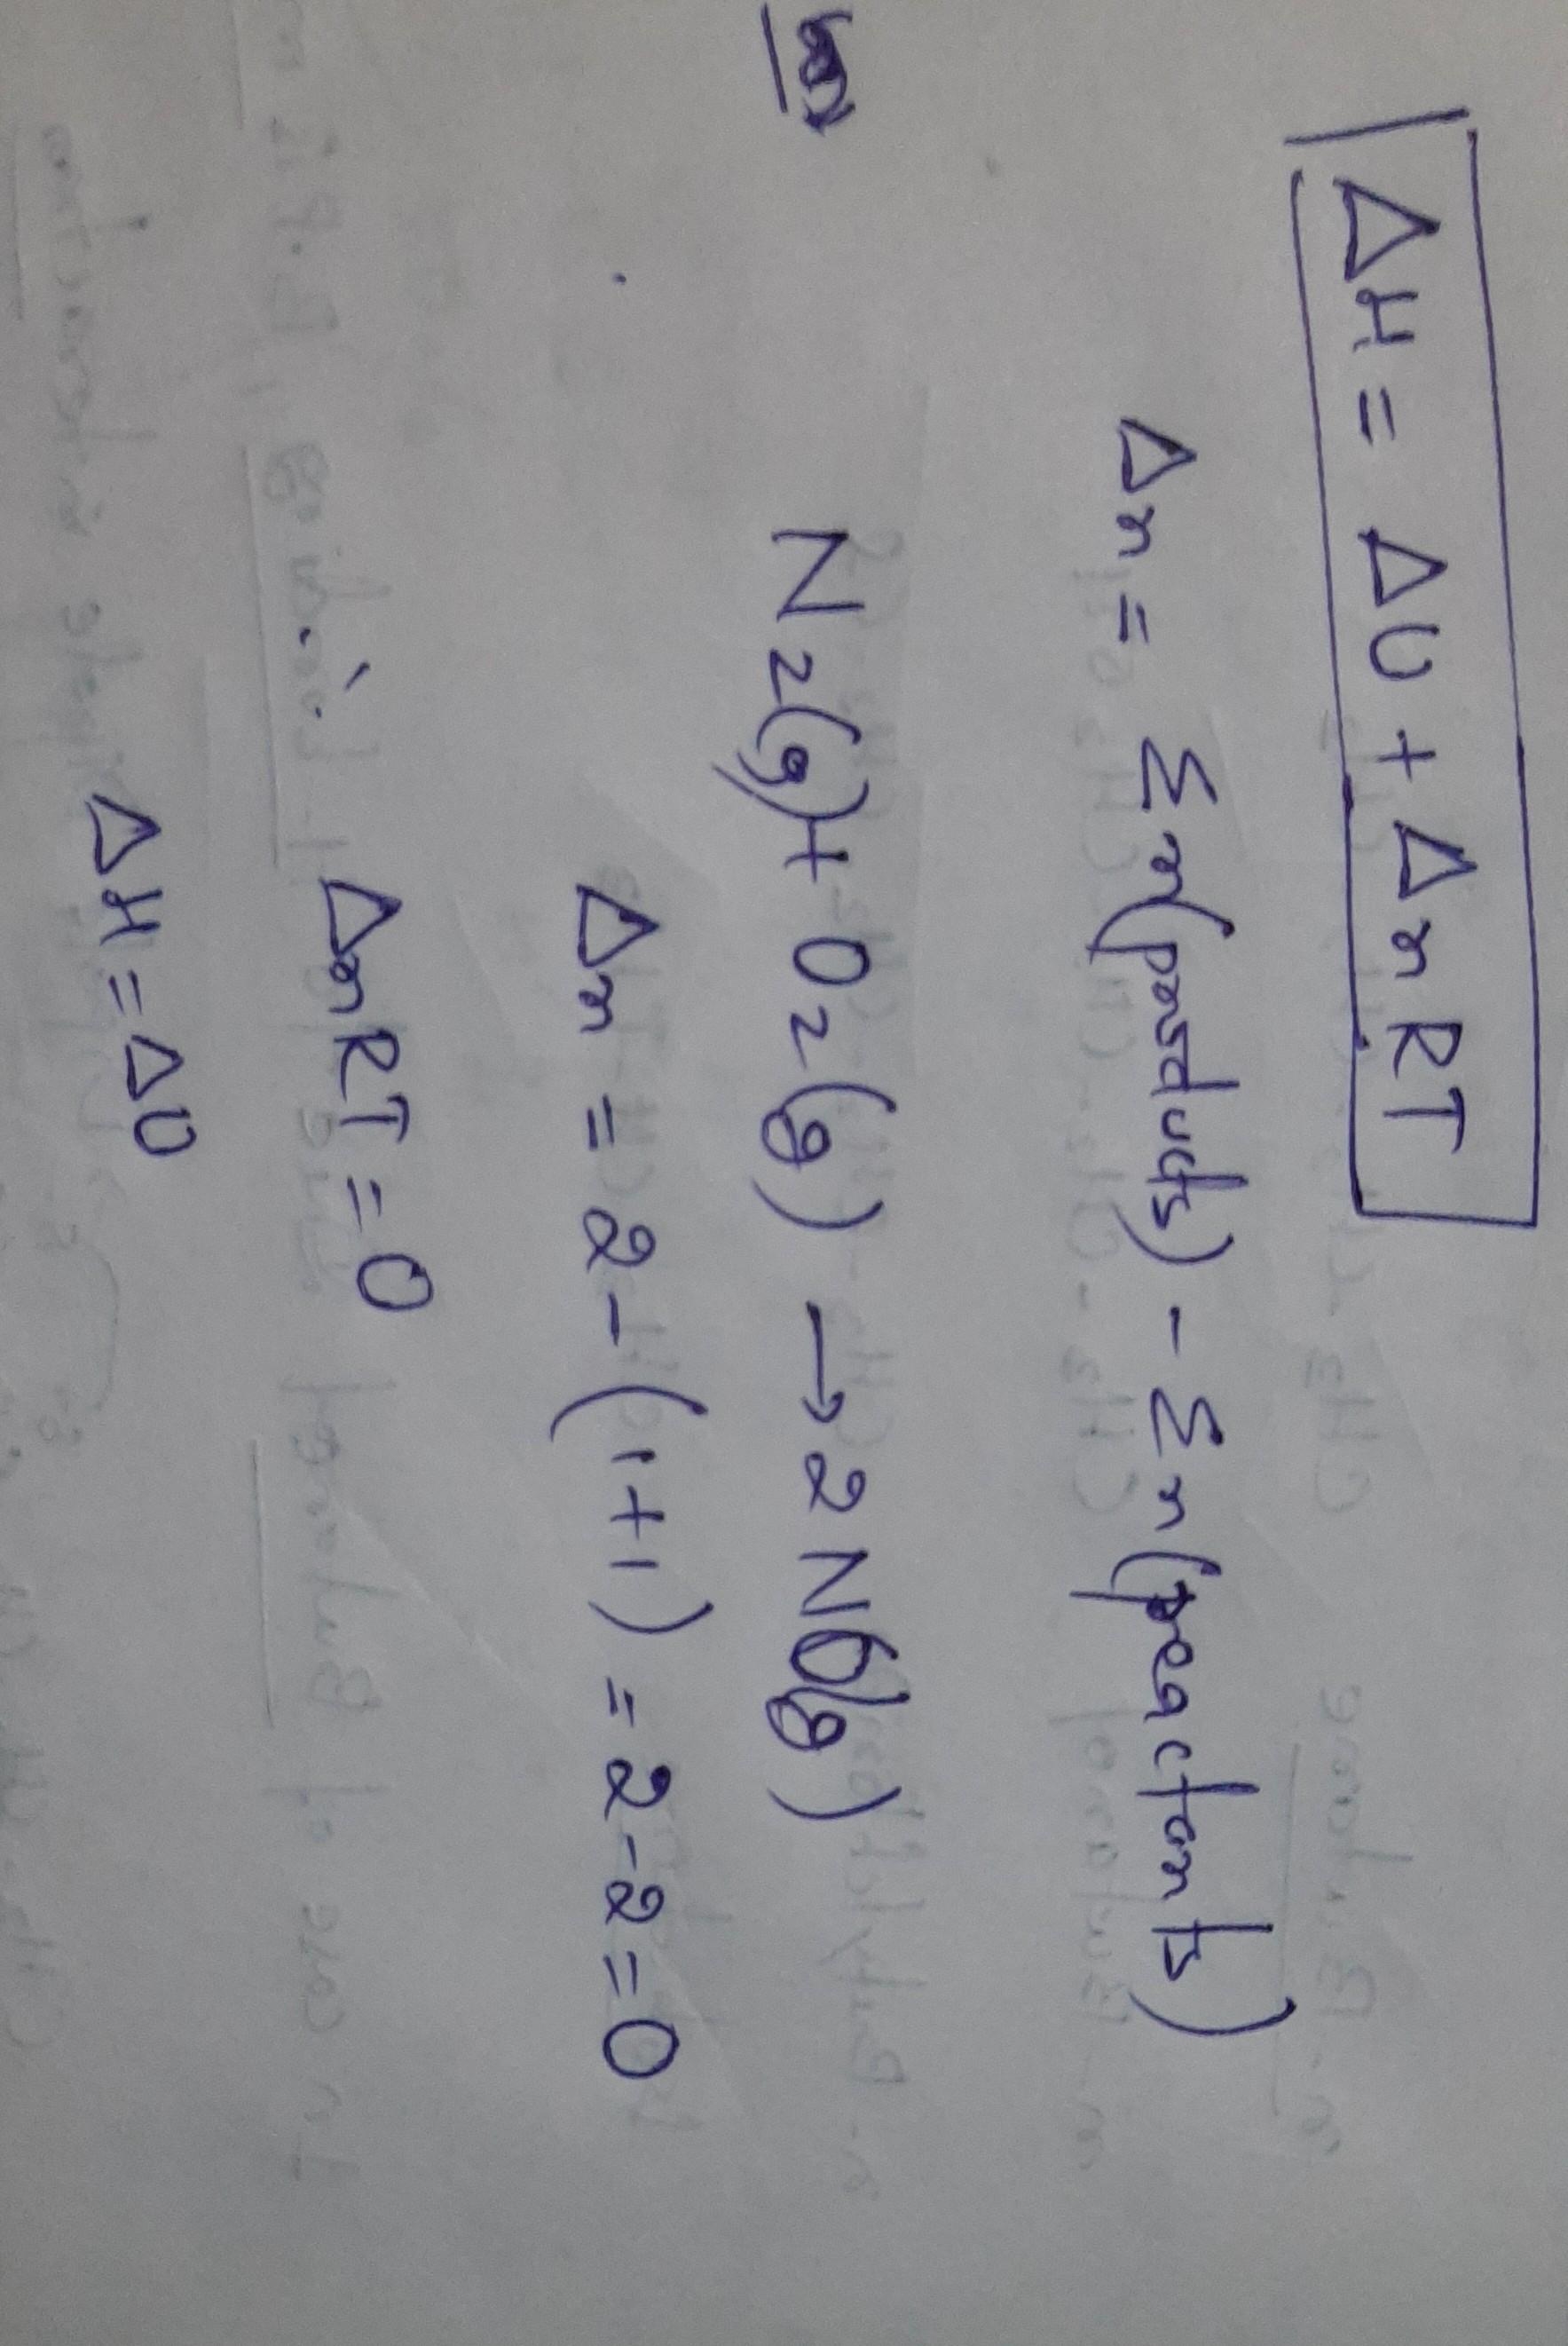 ΔH = ΔU + ΔnRT
Δn = Σn(products) - Σn(reactants)
N2(g) + O2(g) → 2NO(g)
Δn = 2 - (1+1) = 2-2 = 0
∴ ΔnRT = 0
ΔH = ΔU